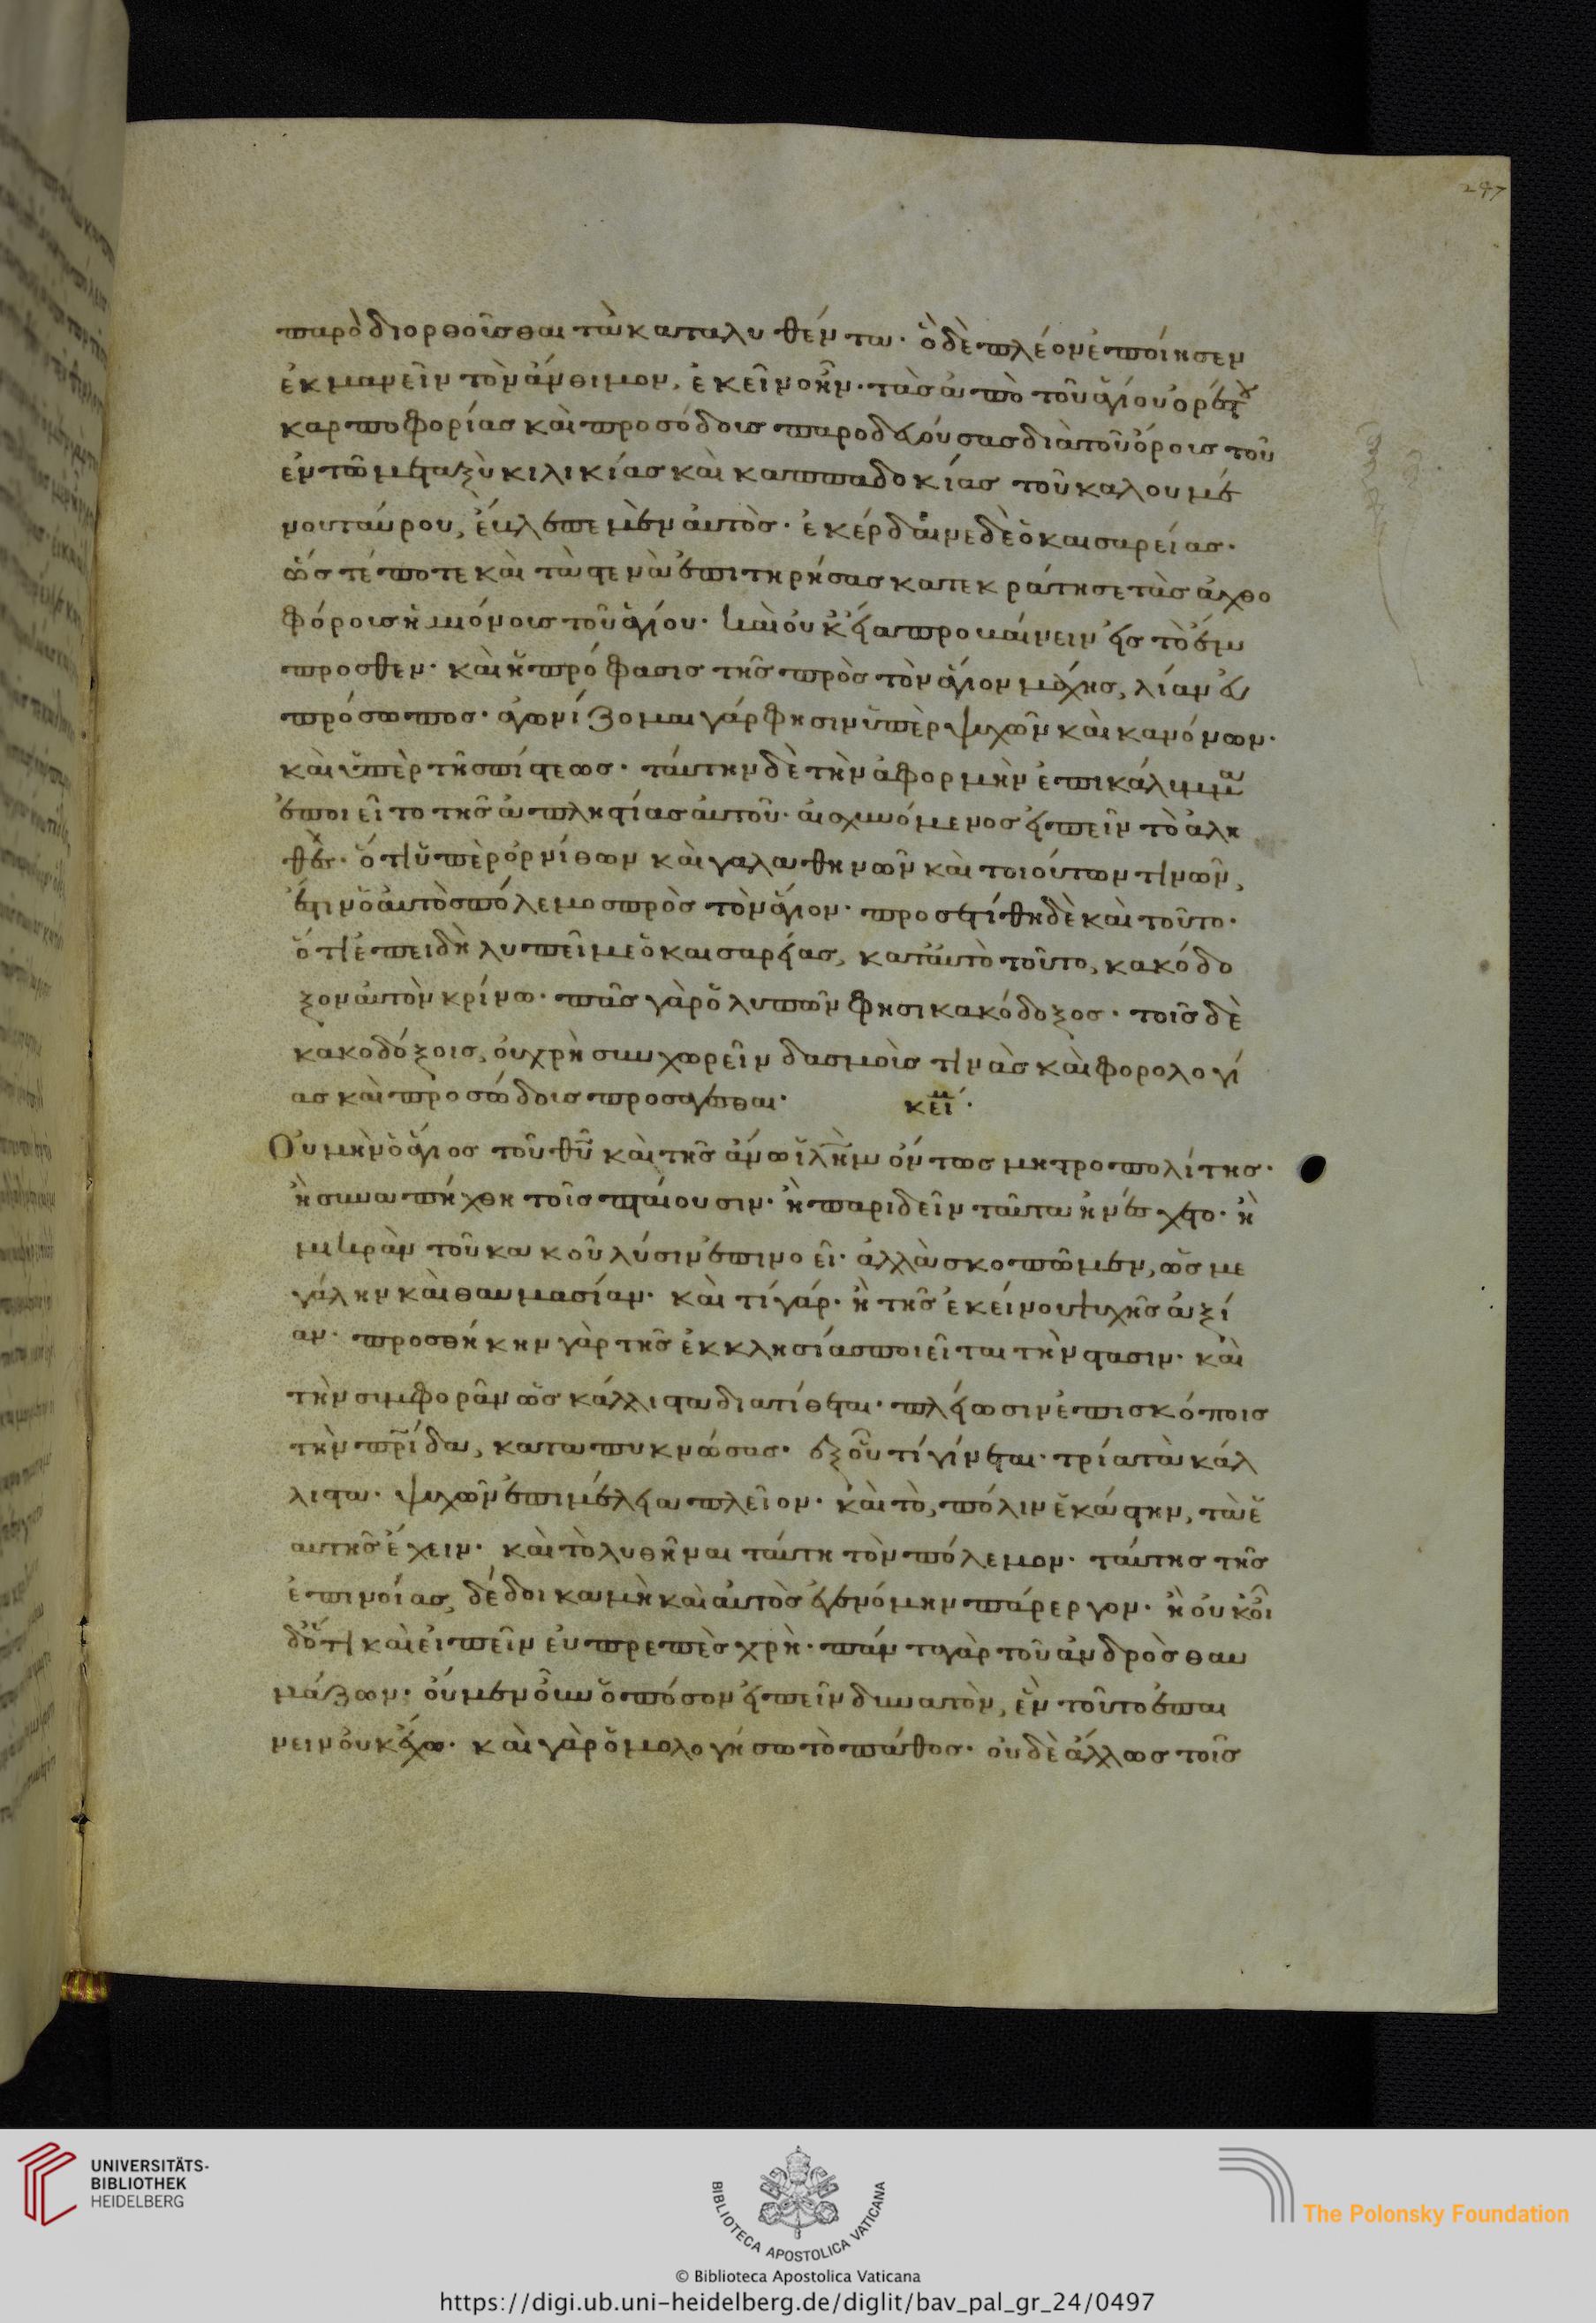 247
παρὸ διορθοῦσθαι τὰ καταλυθέντα· ὃ δὲ πλέον ἐποίησεν
ἐκμανεῖν τὸν ἄνθιμον, ἐκεῖνο ἦν· τὰς ἀπὸ τοῦ ἁγίου ὀρέστου
καρποφορίας καὶ προσόδους παροδευούσας διὰ τοῦ ὄρους τοῦ
ἐν τῶ μεταξὺ κιλικίας καὶ καππαδοκίας τοῦ καλουμέ
νου ταύρου, ἔβλεπε μὲν αὐτὸς· ἐκέρδαινε δὲ ὁ καισαρείας·
ὥς τέ ποτε καὶ τὰ στενὰ ἐπιτηρήσας κατεκράτησε τὰς ἀχθο
φόρους ἡμιόνους τοῦ ἁγίου· καὶ οὐκ εἴα προβαίνειν εἰς τὸ ἔμ
προσθεν· καὶ ἡ πρόφασις τῆς πρὸς τὸν ἅγιον μάχης, λίαν εὐ
πρόσωπος· ἀγωνίζομαι γάρ φησιν ὑπὲρ ψυχῶν καὶ κανόνων·
καὶ ὑπὲρ τῆς πίστεως· ταύτην δὲ τὴν ἀφορμὴν ἐπικάλυμμα
ἐποιεῖτο τῆς ἀπληστίας αὐτοῦ· αἰσχυνόμενος εἰπεῖν τὸ ἀλη
θές· ὅτι ὑπὲρ ὀρνίθων καὶ γαλαθηνῶν καὶ τοιούτων τινῶν,
ἐστιν ὁ αὐτὸς πόλεμος πρὸς τὸν ἅγιον· προσετίθη δὲ καὶ τοῦτο·
ὅτι ἐπειδὴ λυπεῖ με ὁ καισαρείας, κατ' αὐτὸ τοῦτο, κακόδο
ξον αὐτὸν κρίνω· πᾶς γὰρ ὁ λυπῶν φησι κακόδοξος· τοῖς δὲ
κακοδόξοις, οὐ χρὴ συγχωρεῖν δασμοὺς τινὰς καὶ φορολογί
ας καὶ προσώδους προσάγεσθαι· κείμ·
Οὐ μὴν ὁ ἅγιος τοῦ θῦ καὶ τῆς ἄνω ἱλὴμ ὄντως μητροπολίτης·
ἢ συναπήχθη τοῖς πταίουσιν· ἢ παριδεῖν ταῦτα ἠνέσχετο· ἢ
μικρὰν τοῦ κακοῦ λύσιν ἐπινοεῖ· ἀλλὰ σκοπῶμεν, ὡς με
γάλην καὶ θαυμασίαν· καὶ τί γάρ· ἢ τῆς ἐκείνου ψυχῆς ἀξί
αν· προσθήκην γὰρ τῆς ἐκκλησίας ποιεῖται τὴν στασιν· καὶ
τὴν συμφορὰν ὡς κάλλιστα διατίθεται· πλείωσιν ἐπισκόποις
τὴν πρίδα, καταπυκνώσας· ἐξ οὗ τί γίνεται· τρία τὰ κάλ
λιστα· ψυχῶν ἐπιμέλεια πλεῖον· καὶ τὸ, πόλιν ἑκάστην, τὰ ἑ
αυτῆς ἔχειν· καὶ τὸ λυθῆναι ταύτη τὸν πόλεμον· ταύτης τῆς
ἐπινοίας, δέδοικα μὴ καὶ αὐτὸς ἐγενόμην πάρεργον· ἢ οὐκ οἶ
δ' ὅτι καὶ εἰπεῖν εὐπρεπὲς χρὴ· πάντα γὰρ τοῦ ἀνδρὸς θαυ
μάζων· οὐ μὲν οὖν ὁπόσον εἰπεῖν δυνατὸν, ἓν τοῦτο ἐπαι
νειν οὐκ ἔχω· καὶ γὰρ ὁμολογήσω τὸ πάθος· οὐδὲ ἄλλως τοῖς
UNIVERSITÄTS-
BIBLIOTHEK
HEIDELBERG
BIBLIOTECA APOSTOLICA VATICANA
© Biblioteca Apostolica Vaticana
The Polonsky Foundation
https://digi.ub.uni-heidelberg.de/diglit/bav_pal_gr_24/0497